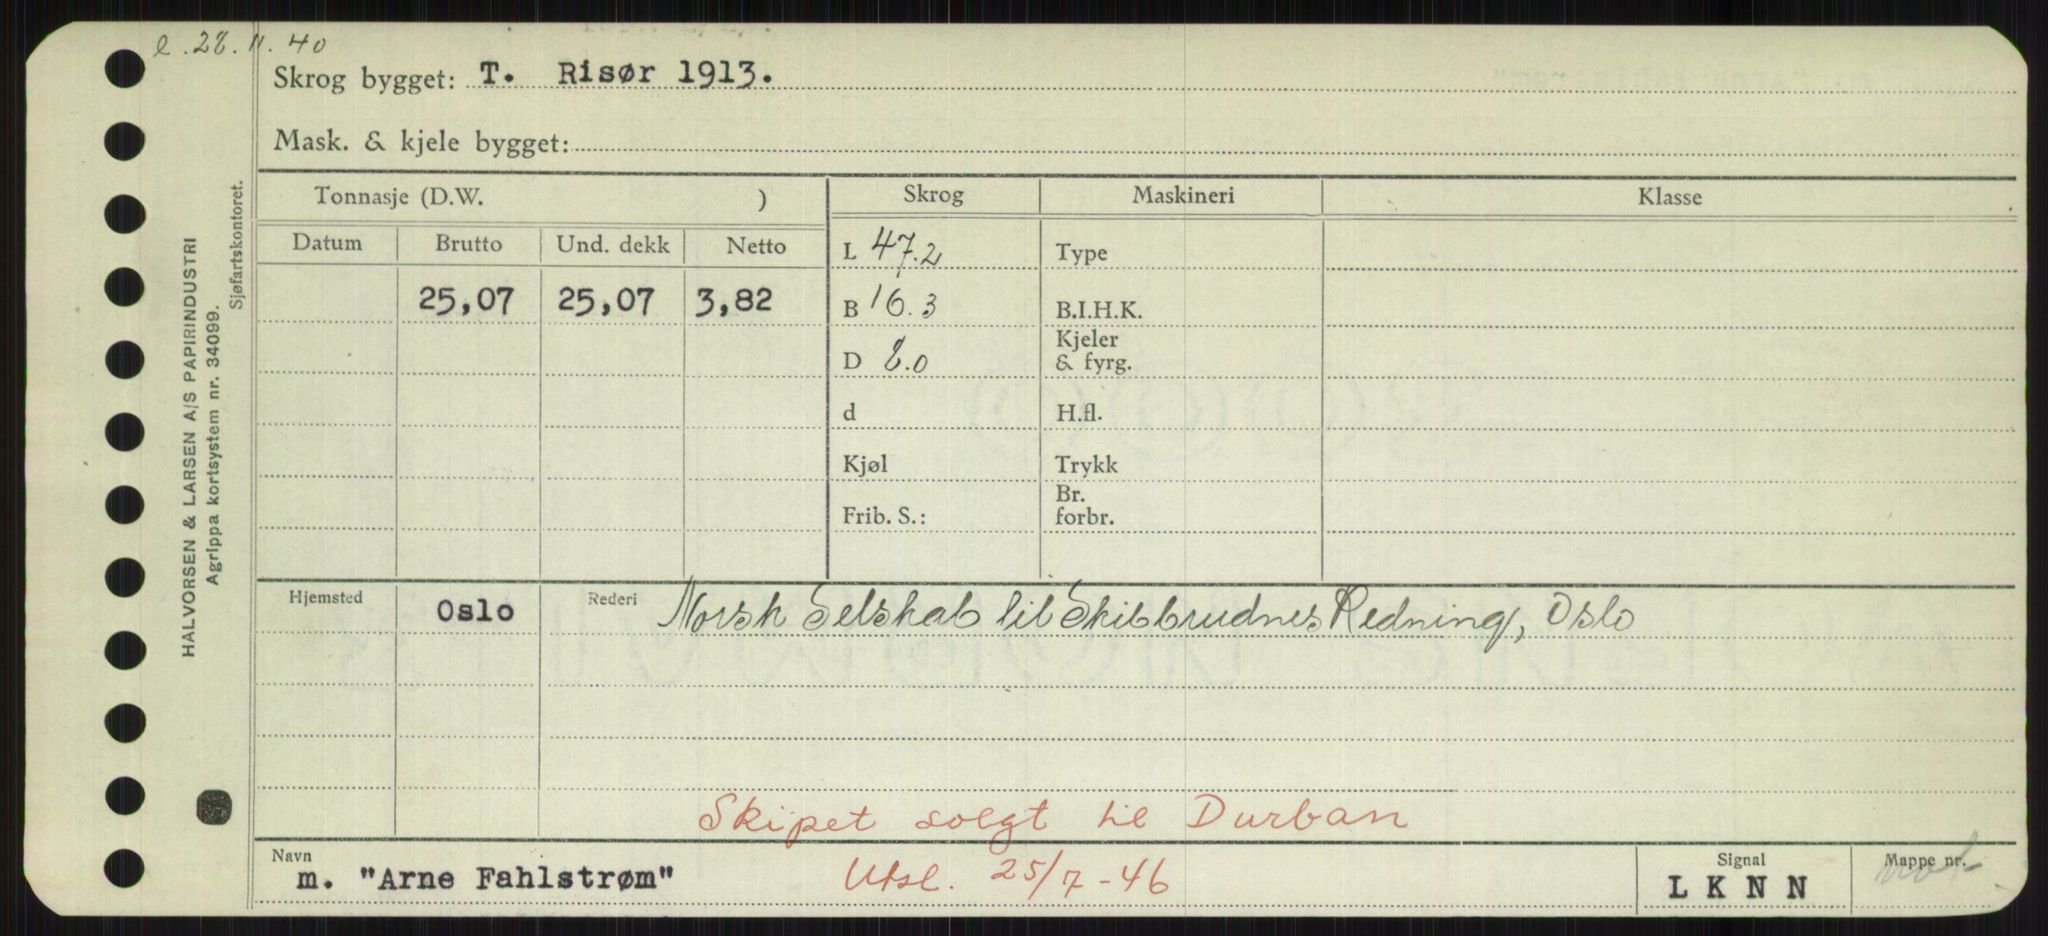 e. 28. 11. 40
Skrog bygget: T. Risør 1913.
Mask. & kjele bygget:
Tonnasje (D.W. )
Skrog
Maskineri
Klasse
Datum
Brutto
Und. dekk
Netto
25,07
25,07
3,82
L 47.2
B 16.3
D 8.0
d
Kjøl
Frib. S.:
Type
B.I.H.K.
Kjeler
& fyrg.
H.fl.
Trykk
Br.
forbr.
Hjemsted
Oslo
Rederi
Norsk Selskab til Skibbrudnes Redning, Oslo
Skipet solgt til Durban
Navn
m. "Arne Fahlstrøm"
Utsl. 25/7-46
Signal
L K N N
Mappe nr.
HALVORSEN & LARSEN A/S PAPIRINDUSTRI
Agrippa kortsystem nr. 34099.
Sjøfartskontoret.